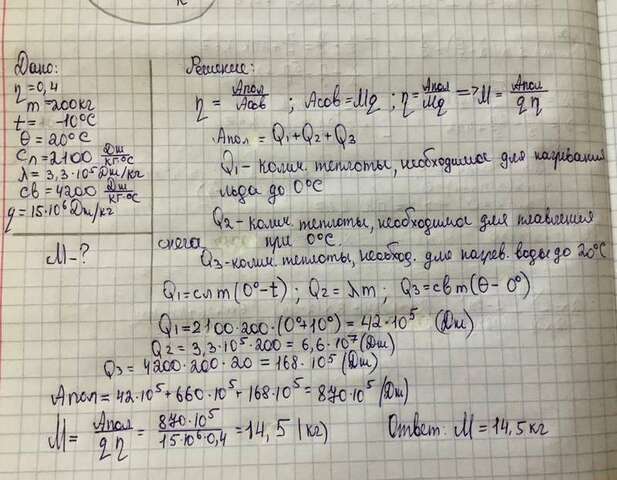 Дано:
η=0,4
m=200кг
t= -10°C
θ=20°C
Cл=2100 Дж/кг·°C
λ=3,3·10⁵ Дж/кг
cв=4200 Дж/кг·°C
q=15·10⁶ Дж/кг
M-?
Решение:
η = Aпол/Aсов ; Aсов=Mq ; η=Aпол/Mq => M = Aпол/qη
Aпол = Q1+Q2+Q3
Q1- колич. теплоты, необходимое для нагревания
льда до 0°C
Q2-колич. теплоты, необходимое для плавления
снега при 0°C.
Q3-колич. теплоты, необход. для нагрев. воды до 20°C
Q1=cлm(0°-t) ; Q2= λm ; Q3=cвm(θ-0°)
Q1=2100·200·(0°+10°)=42·10⁵ (Дж)
Q2= 3,3·10⁵·200=6,6·10⁷(Дж)
Q3= 4200·200·20=168·10⁵(Дж)
Aпол=42·10⁵+660·10⁵+168·10⁵=870·10⁵(Дж)
M= Aпол/qη = 870·10⁵/15·10⁶·0,4 =14,5 (кг)
Ответ: M=14,5кг